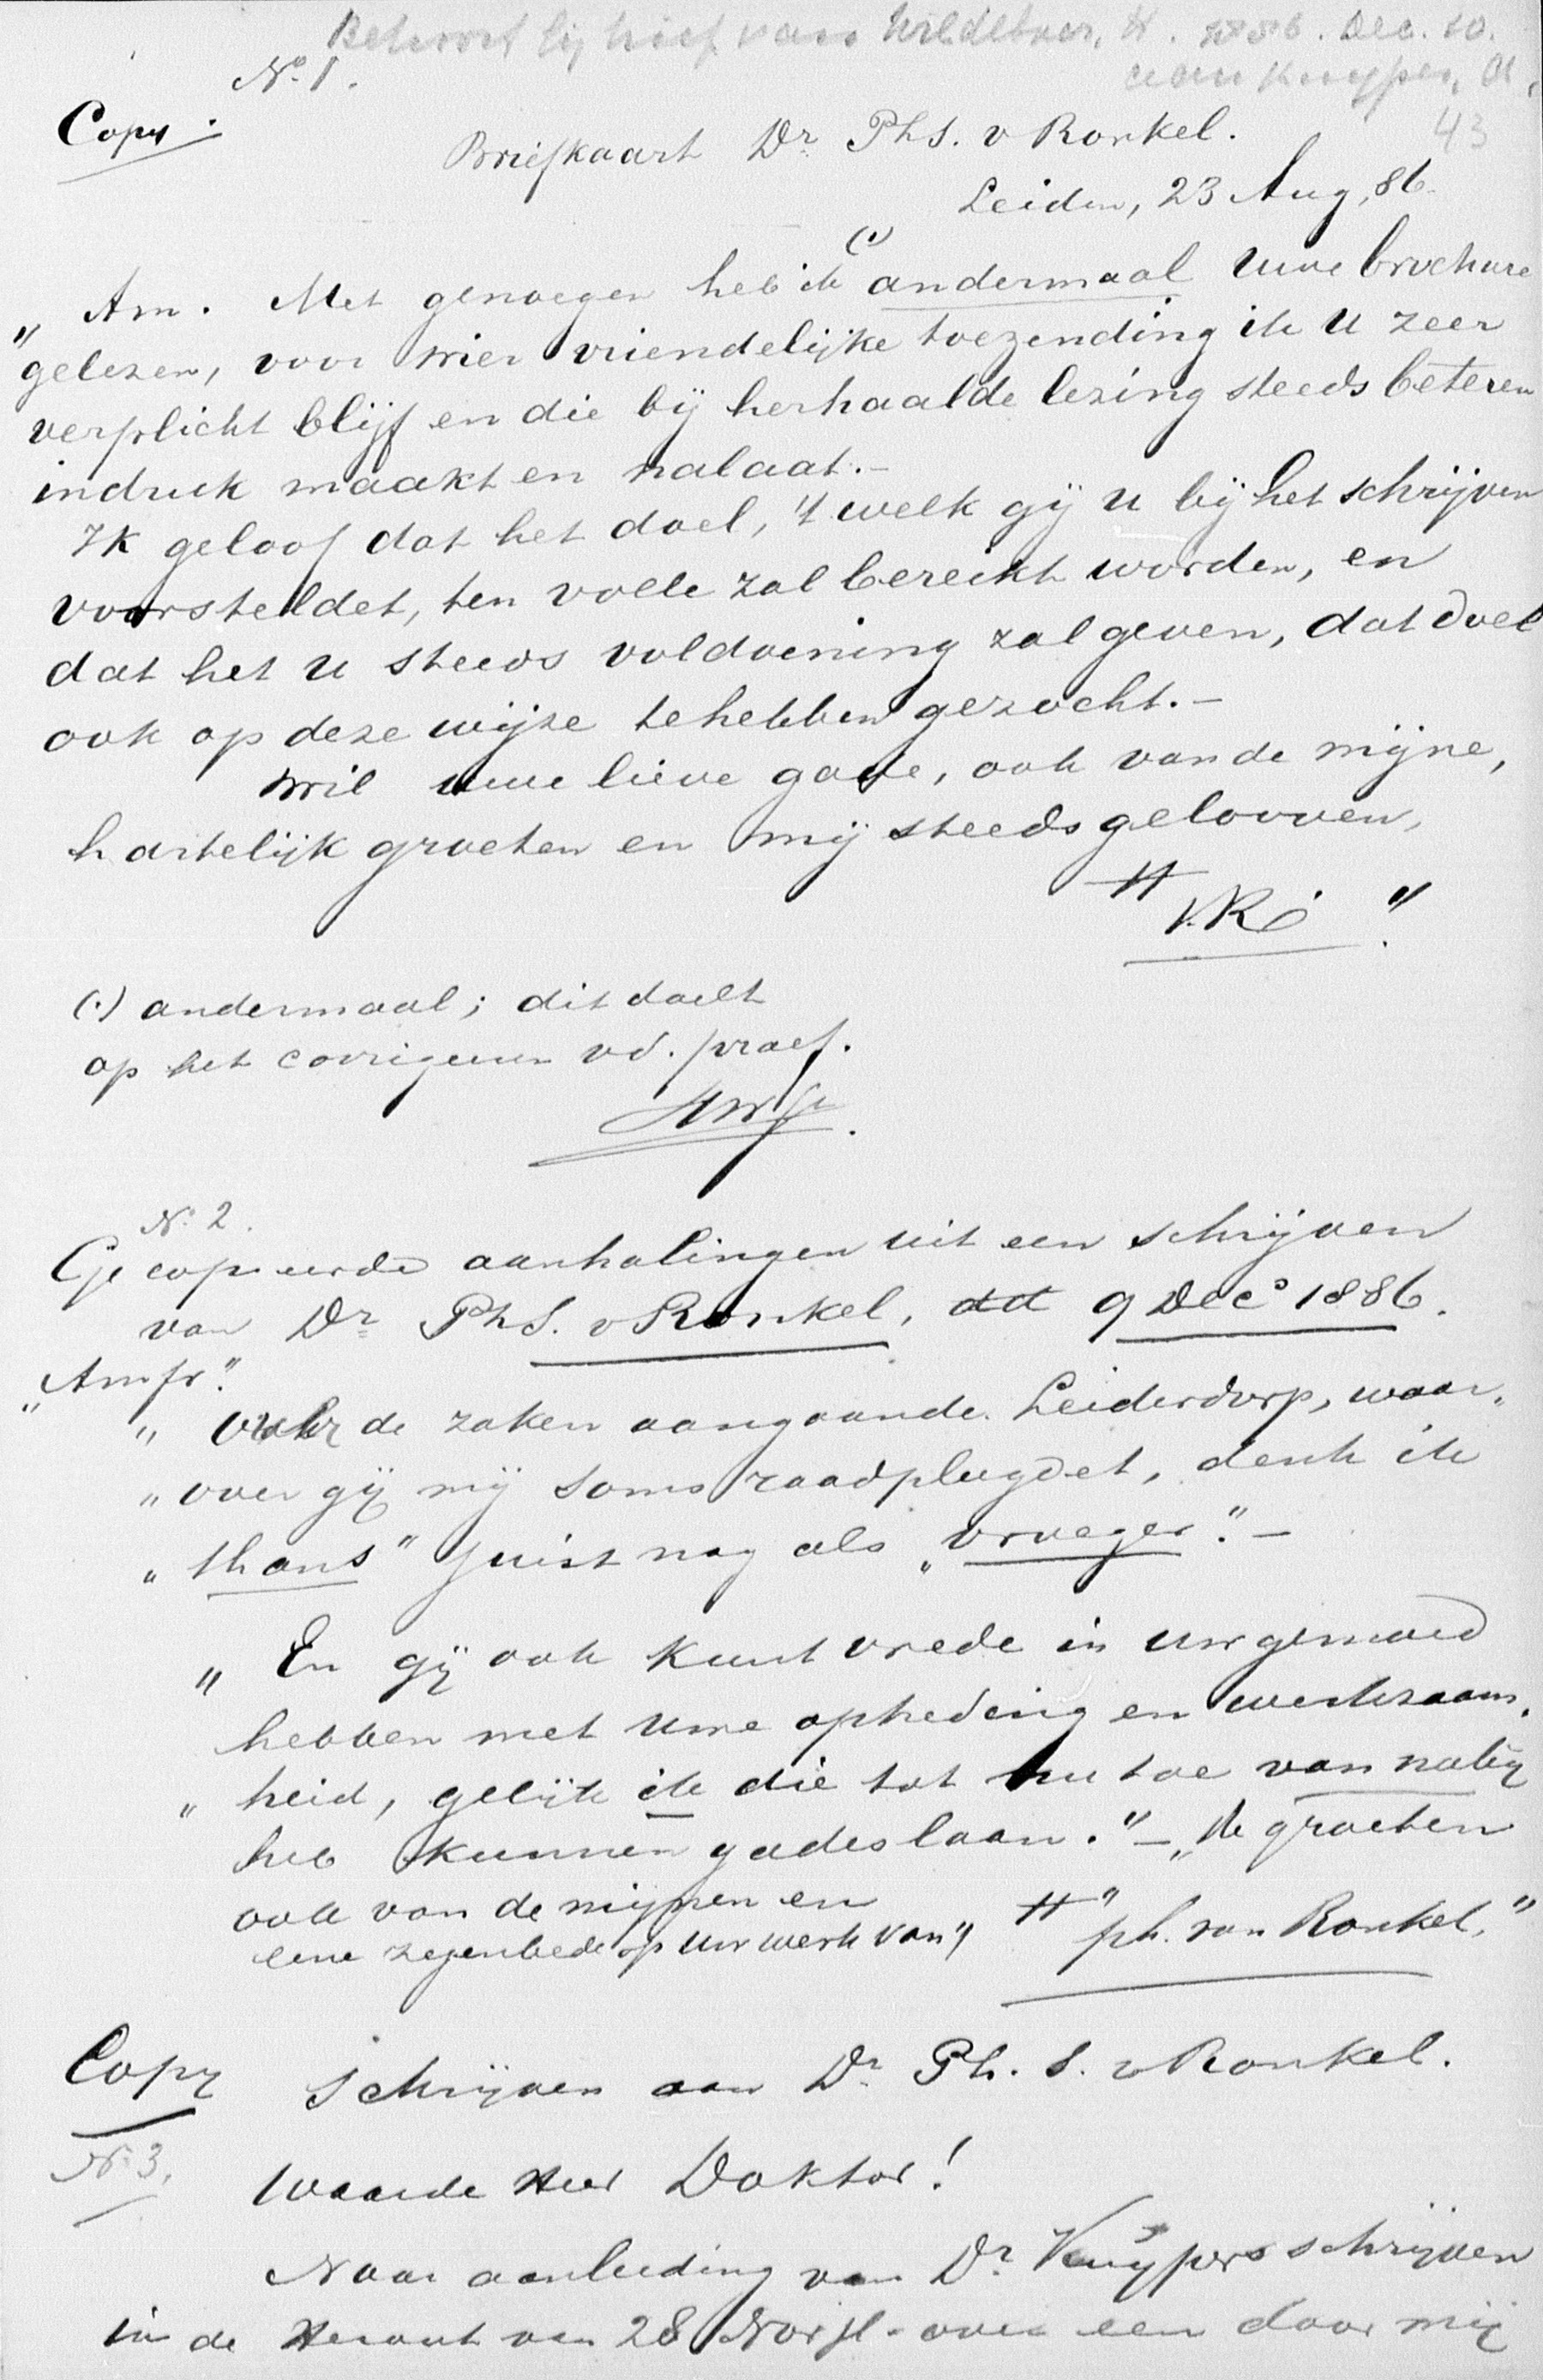 Behoort bij brief van Wildeboer, H. 1886. Dec. 10.
aan Kuyper, A.
43
No. 1.
Copy.
Briefkaart Dr. Ph S. v Ronkel.
Leiden, 23 Aug, 86.
(1)
„ Am. Met genoegen heb ik andermaal Uwe brochure
gelezen, voor wier vriendelijke toezending ik U zeer
verplicht blijf en die bij herhaalde lezing steeds beteren
indruk maakt en nalaat.–
Ik geloof dat het doel, 't welk gij u bij het schrijven
voorsteldet, ten volle zal bereikt worden, en
dat het u steeds voldoening zal geven, dat doel
ook op deze wijze te hebben gezocht.–
Wil uwe lieve gade, ook van de mijne,
hartelijk groeten en mij steeds gelooven,
tt
v.R. "
(1) andermaal; dit doelt
op het corrigeeren vd. proef.
No. 2.
Gecopieerde aanhalingen uit een schrijven
van Dr Ph S. v Ronkel, dd 9 Dec 1886.
„Amfr."
„ Over de zaken aangaande Leiderdorp, waar„
„ over gij mij soms raadpleegdet, denk ik
„ thans" juist nog als „vroeger".–
„ En gij ook kunt vrede in Uw gemoed
hebben met Uwe opheding en werkzaam„
„ heid, gelijk ik die tot nu toe van nabij
heb kunnen gadeslaan."– „Me groeten
ook van de mijnen en
eene zegenbede op Uw werk van" tt" ph. van Ronkel."
Copy Schrijven aan Dr. Ph. S. v Ronkel.
No 3.
Waarde Heer Doktor!
Naar aanleiding van Dr. Kuypers schrijven
in de Heraut van 28 Nov jl. over een door mij